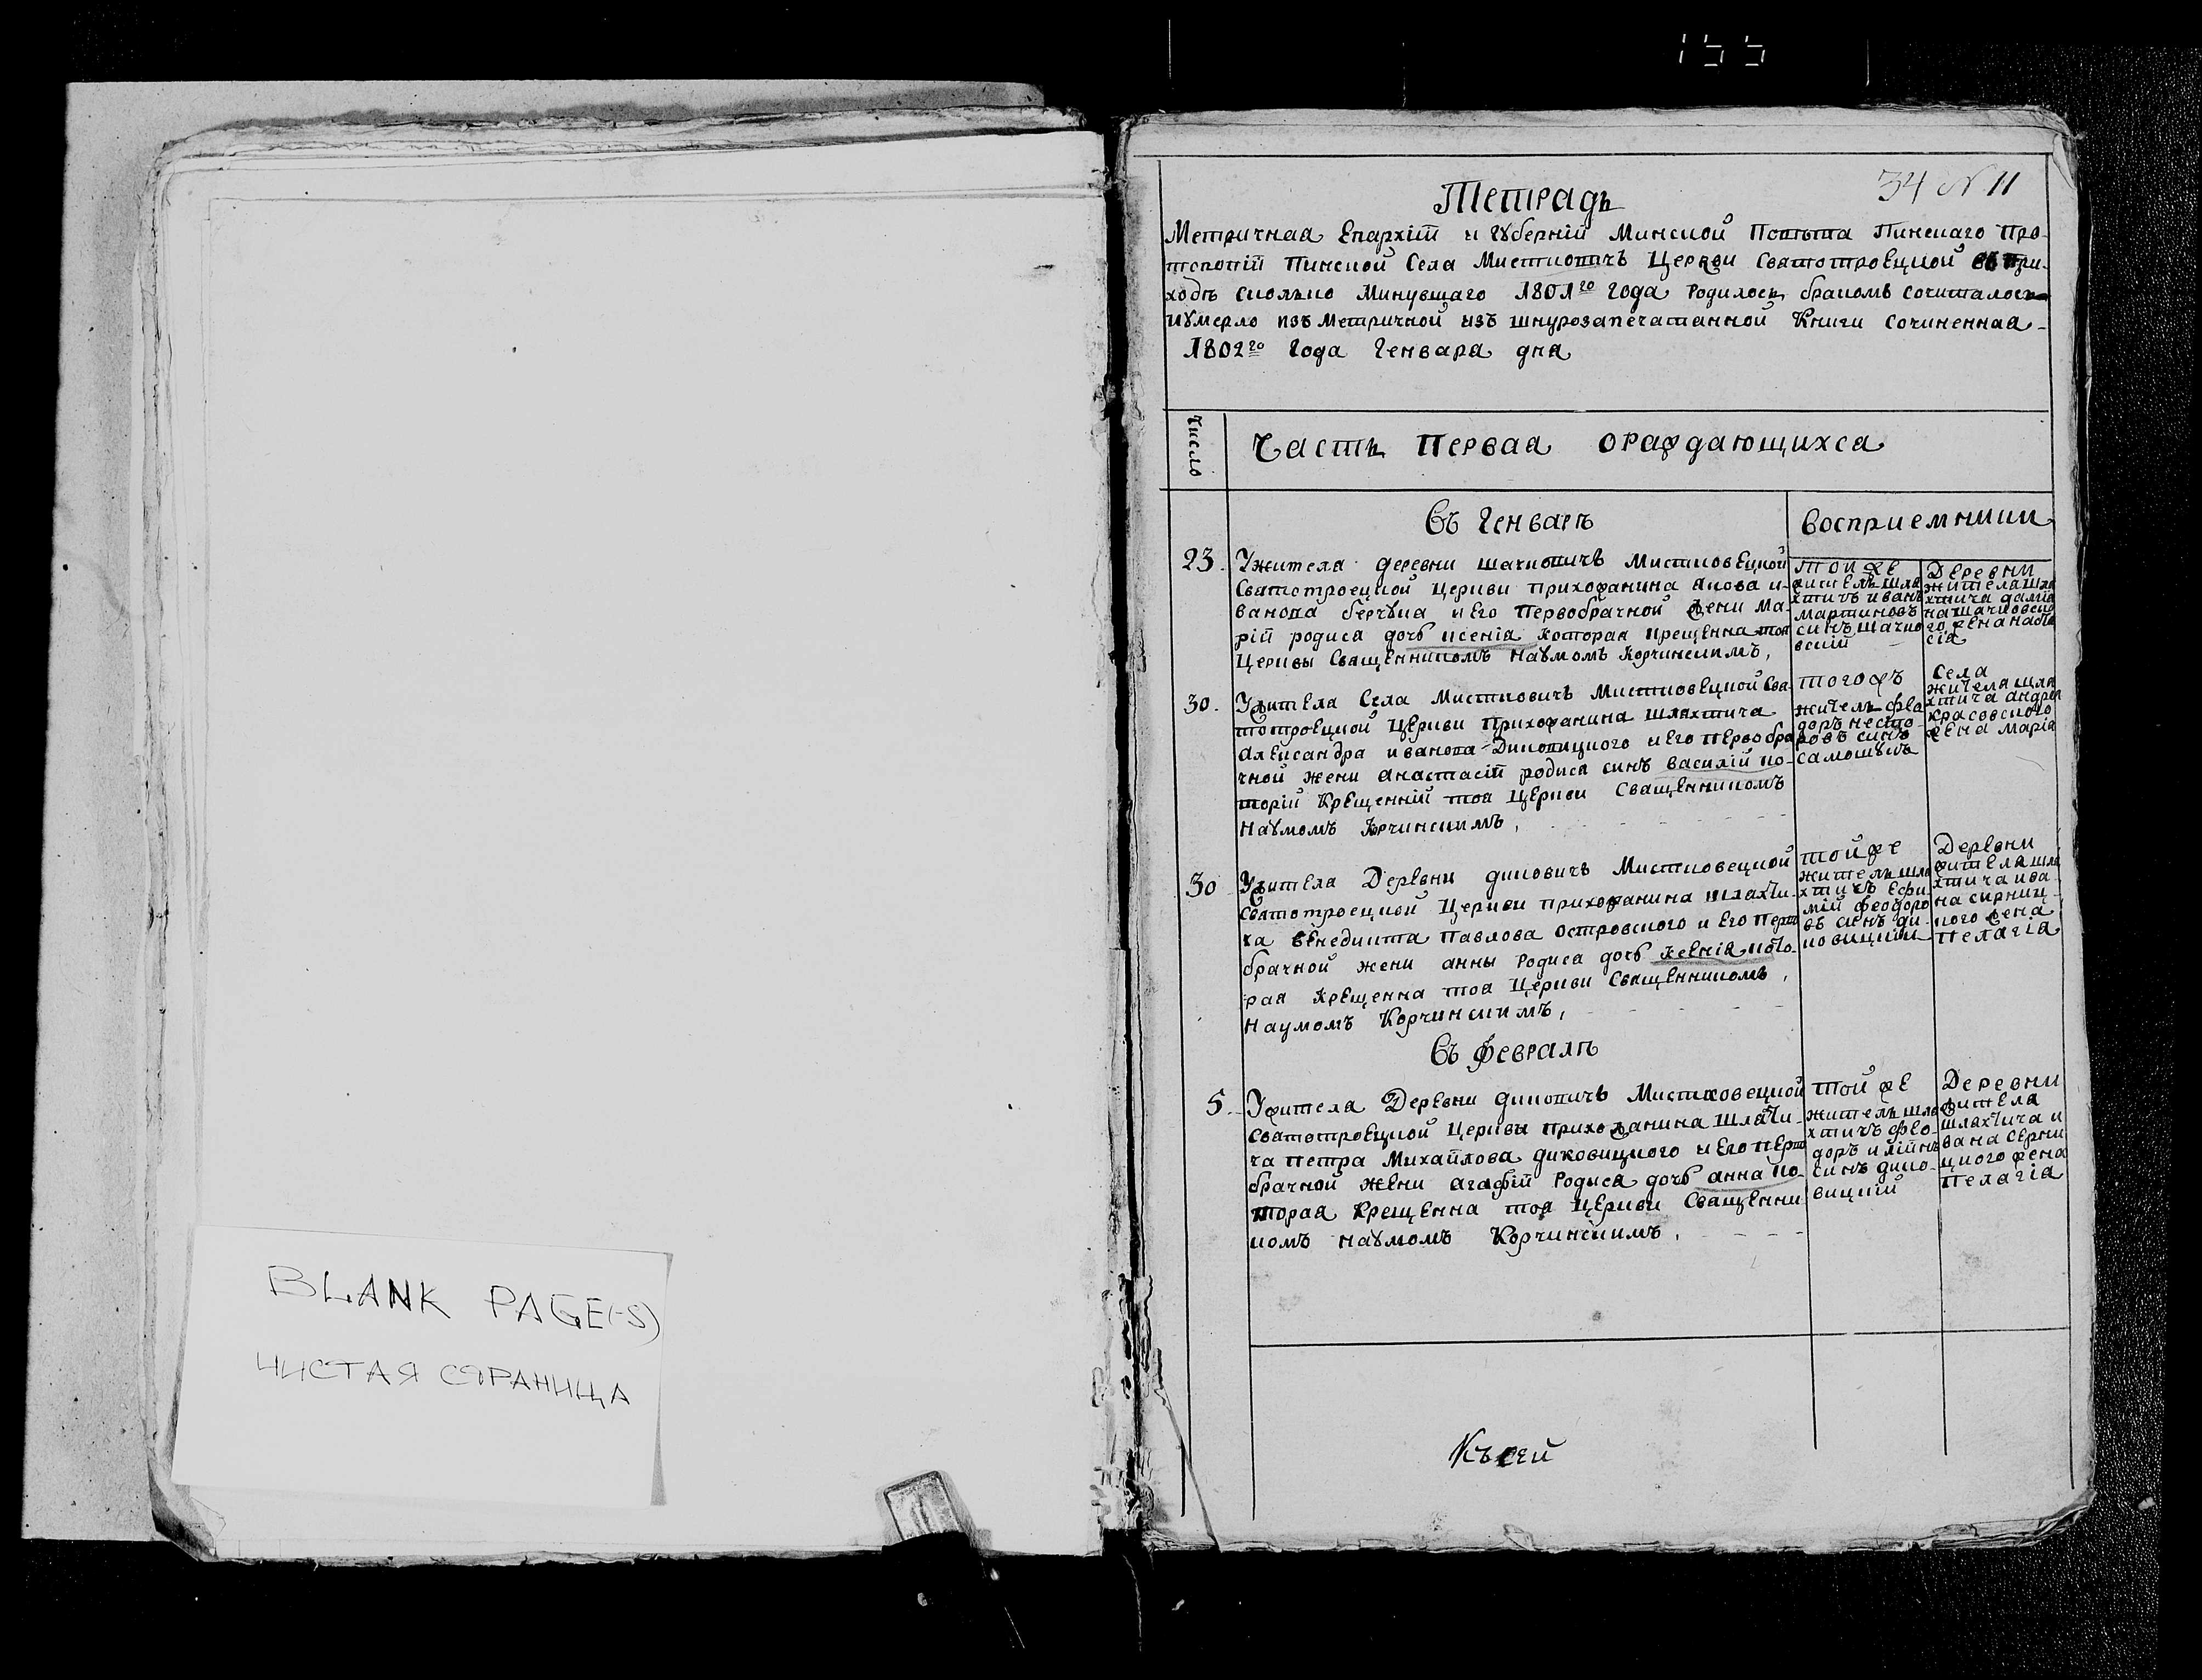 155
BLANK PAGE(-S)
ЧИСТАЯ СТРАНИЦА
34 N 11
Тетрадь
Метричная Епархіи и Губерніи Минской Повѣта Пинскаго Про-
топопіи Пинской Села Мистковичъ Церкви Святотроецкой въ При-
ходѣ сколько Минувшаго 1801го Года Родилось бракомъ сочиталось
иумерло изъ Метричной изъ шнурозапечатанной Книги сочиненная
1802го Года Генваря дня
Число
Часть Первая ораждающихся
Въ Генварѣ
восприемники
23.
Ужителя деревни шачковичъ Мистковецкой
Святотроецкой Церкви прихожанина якова и-
ванова берчука иЕго Первобрачной жени Ма-
рій родися дочь ксенія которая крещенна тоя
Церквы Священникомъ Наумомъ Корчинскимъ,
той же
житель шля
хтичъ иванъ
мартиновъ
синъ шачко
вскій
Деревни
жителя шля
хтича даміа
на шачковско
го жена наста
сія
30.
Ужителя Села Мистковичъ Мистковецкой Свя-
тотроецкой Церкви Прихожанина шляхтича
Александра иванова Диковицкого иЕго перво бра
чной жени анастасіи родися синъ василій ко-
торій Крещенній тоя Церкви Священникомъ
Наумомъ Корчинскимъ,
тогожъ
житель фео
доръ несто-
ровъ синъ
самошукъ
Села
жителя шля
хтича андрея
красовского
жена марія
30
Ужителя Деревни диковичъ Мистковецкой
Святотроецкой Церкви прихожанина шляхти-
ча венедикта Павлова островского и Его перво
брачной жени анны Родися дочь ксенія кото-
рая Крещенна тоя Церкви Священникомъ,
Наумомъ Корчинскимъ,
тойже
житель шля
хтичъ ефи-
мій феодоро
въ синъ ди-
ковицкій
Деревни
жителя шля
хтича ива
на сернич-
кого жена
Пелагія
Въ Февралѣ
5.
Ужителя Деревни диковичъ Мистковецкой
Святотроецкой Церквы прихожанина Шляхти-
ча Петра Михайлова диковицкого иЕго перво
брачной жени агафіи Родися дочь анна ко-
торая Крещенна тоя Церкви Священни
комъ Наумомъ Корчинскимъ,
той же
житель шля
хтичъ фео-
доръ илійнъ
синъ дико-
вицкій
Деревни
жителя
шляхтича и
вана серни
цкого жена
Пелагія
Къ сей